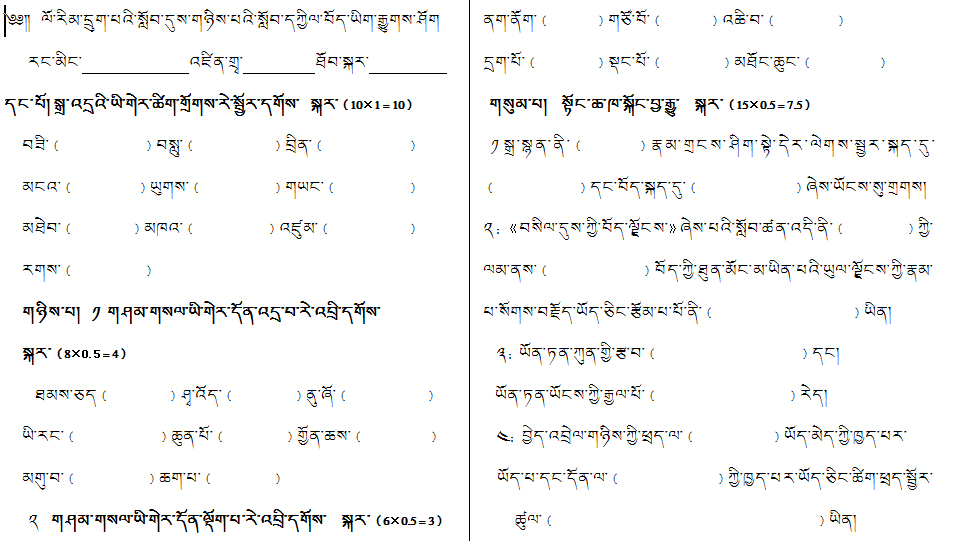 ༄༅།། ལོ་རིམ་དྲུག་པའི་སློབ་དུས་གཉིས་པའི་སློབ་དཀྱིལ་བོད་ཡིག་རྒྱུགས་ཤོག
རང་མིང་______________འཛིན་གྲྭ་_________ཐོབ་སྐར་__________
དང་པོ། སྒྲ་འདྲའི་ཡི་གེར་ཚིག་གྲོགས་རེ་སྦྱོར་དགོས་ སྐར་ (10×1=10)
བཟི་ ( ) བསླུ་ ( ) བྲིན་ ( )
མངའ་ ( ) ཡུགས་ ( ) གཡང་ ( )
མཐེབ་ ( ) མཁའ་ ( ) འཛུམ་ ( )
རགས་ ( )
གཉིས་པ། ༡ གཤམ་གསལ་ཡི་གེར་དོན་འདྲ་བ་རེ་འབྲི་དགོས་
སྐར་ (8×0.5=4)
ཐམས་ཅད ( ) ཤྭ་འོད་ ( ) ནུ་ཞོ་ ( )
ཡི་རང་ ( ) ཆུན་པོ་ ( ) གྱོན་ཆས་ ( )
མགུ་བ་ ( ) ཆག་པ་ ( )
༢ གཤམ་གསལ་ཡི་གེར་དོན་ལྡོག་པ་རེ་འབྲི་དགོས་ སྐར་ (6×0.5=3)
ནག་ནོག་ ( ) གཙོ་བོ་ ( ) འཆི་བ་ ( )
དྲག་པོ་ ( ) སྡང་པོ་ ( ) མཐོང་ཆུང་ ( )
གསུམ་པ། སྟོང་ཆ་ཁ་སྐོང་བྱ་རྒྱུ་ སྐར་ (15×0.5=7.5)
༡ སྒྲ་སྙན་ནི་ ( ) རྣམ་གྲངས་ཤིག་སྟེ་དེར་ལེགས་སྦྱར་སྐད་དུ་
( ) དང་བོད་སྐད་དུ་ ( ) ཞེས་ཡོངས་སུ་གྲགས།
༢: 《བསིལ་དུས་ཀྱི་བོད་ལྗོངས་》ཞེས་པའི་སློབ་ཚན་འདི་ནི་ ( ) ཀྱི་
ལམ་ནས་ ( ) བོད་ཀྱི་ཐུན་མོང་མ་ཡིན་པའི་ཡུལ་ལྗོངས་ཀྱི་རྣམ་
པ་སོགས་བརྗོད་ཡོད་ཅིང་རྩོམ་པ་པོ་ནི་ ( ) ཡིན།
༣: ཡོན་ཏན་ཀུན་གྱི་རྩ་བ་ ( ) དང།
ཡོན་ཏན་ཡོངས་ཀྱི་རྒྱལ་པོ་ ( ) རེད།
༤: བྱེད་འབྲེལ་གཉིས་ཀྱི་ཕྲད་ལ་ ( ) ཡོད་མེད་ཀྱི་ཁྱད་པར་
ཡོད་པ་དང་དོན་ལ་ ( ) ཀྱི་ཁྱད་པར་ཡོད་ཅིང་ཚིག་ཕྲད་སྦྱོར་
ཚུལ་ ( ) ཡིན།